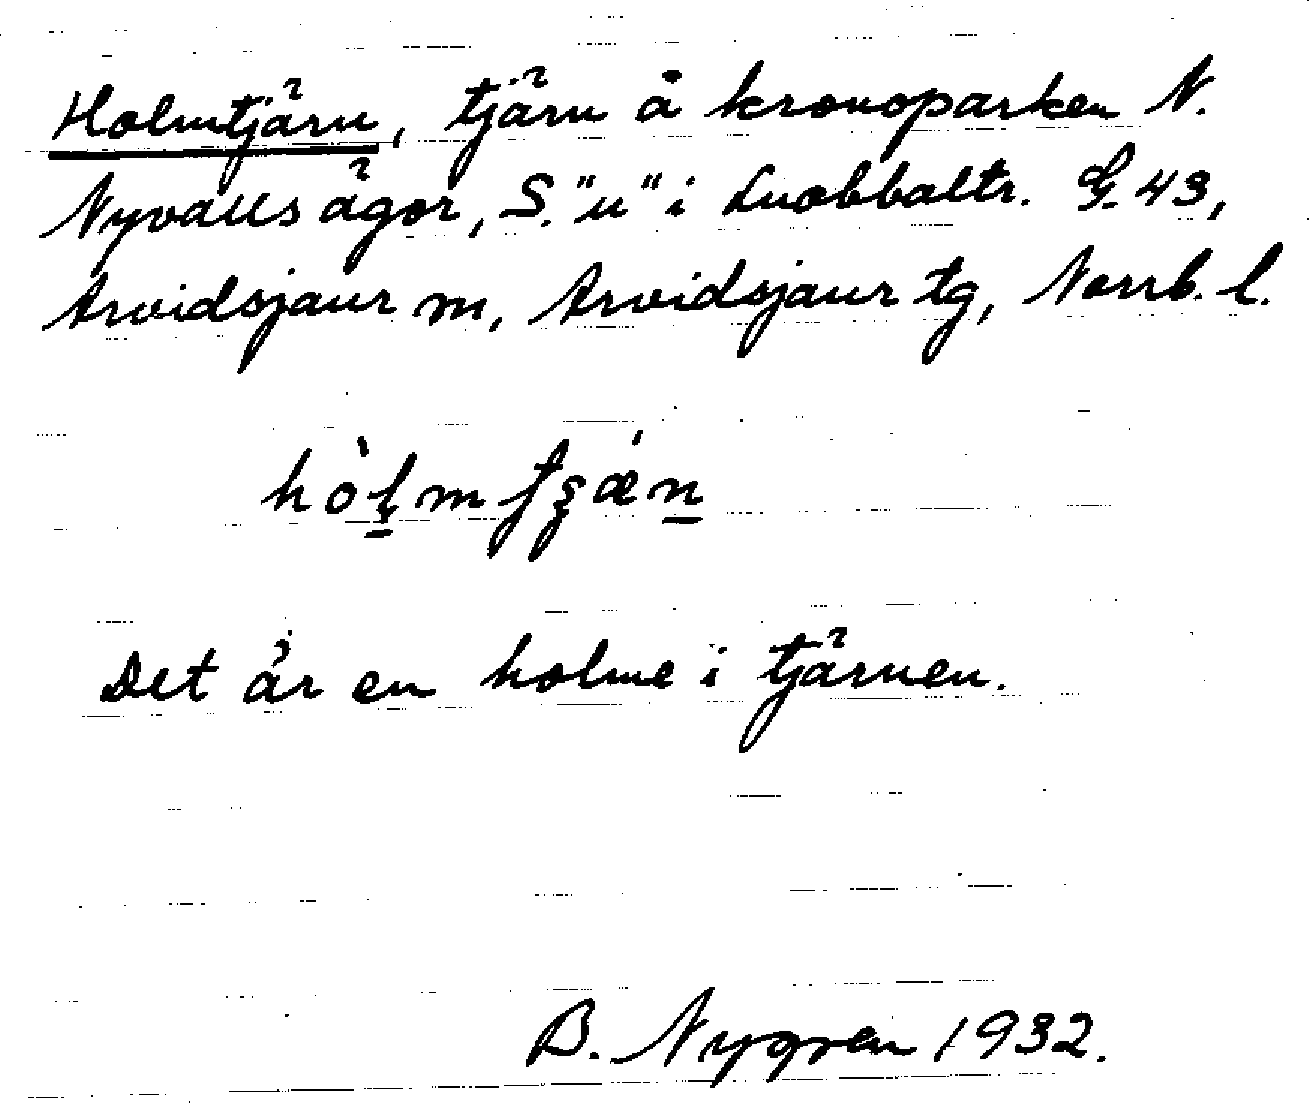 Holmtjärn, tjärn å kronoparken N.
Nyvalls ägor, S. "u" i Luobbaltr. G. 43,
Arvidsjaur m, Arvidsjaur tg, Norrb. l.
Det är en holme i tjärnen.
B. Nygren 1932.